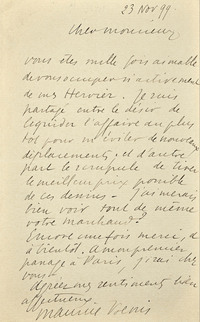 23 Nov 99.
Cher monsieur
vous êtes mille fois aimable
de vous occuper si activement
de mes Hervier. Je suis
partagé entre le désir de
liquider l'affaire au plus
tôt pour m'éviter de nouveaux
déplacements, et d'autre
part le scrupule de tirer
le meilleur prix possible
de ces dessins - j'aimerais
bien voir tout de même
votre marchand?
Encore une fois merci, et
à bientôt. A mon premier
passage à Paris, j'irai chez
vous.
Agréez mes sentiments bien
affectueux.
Maurice